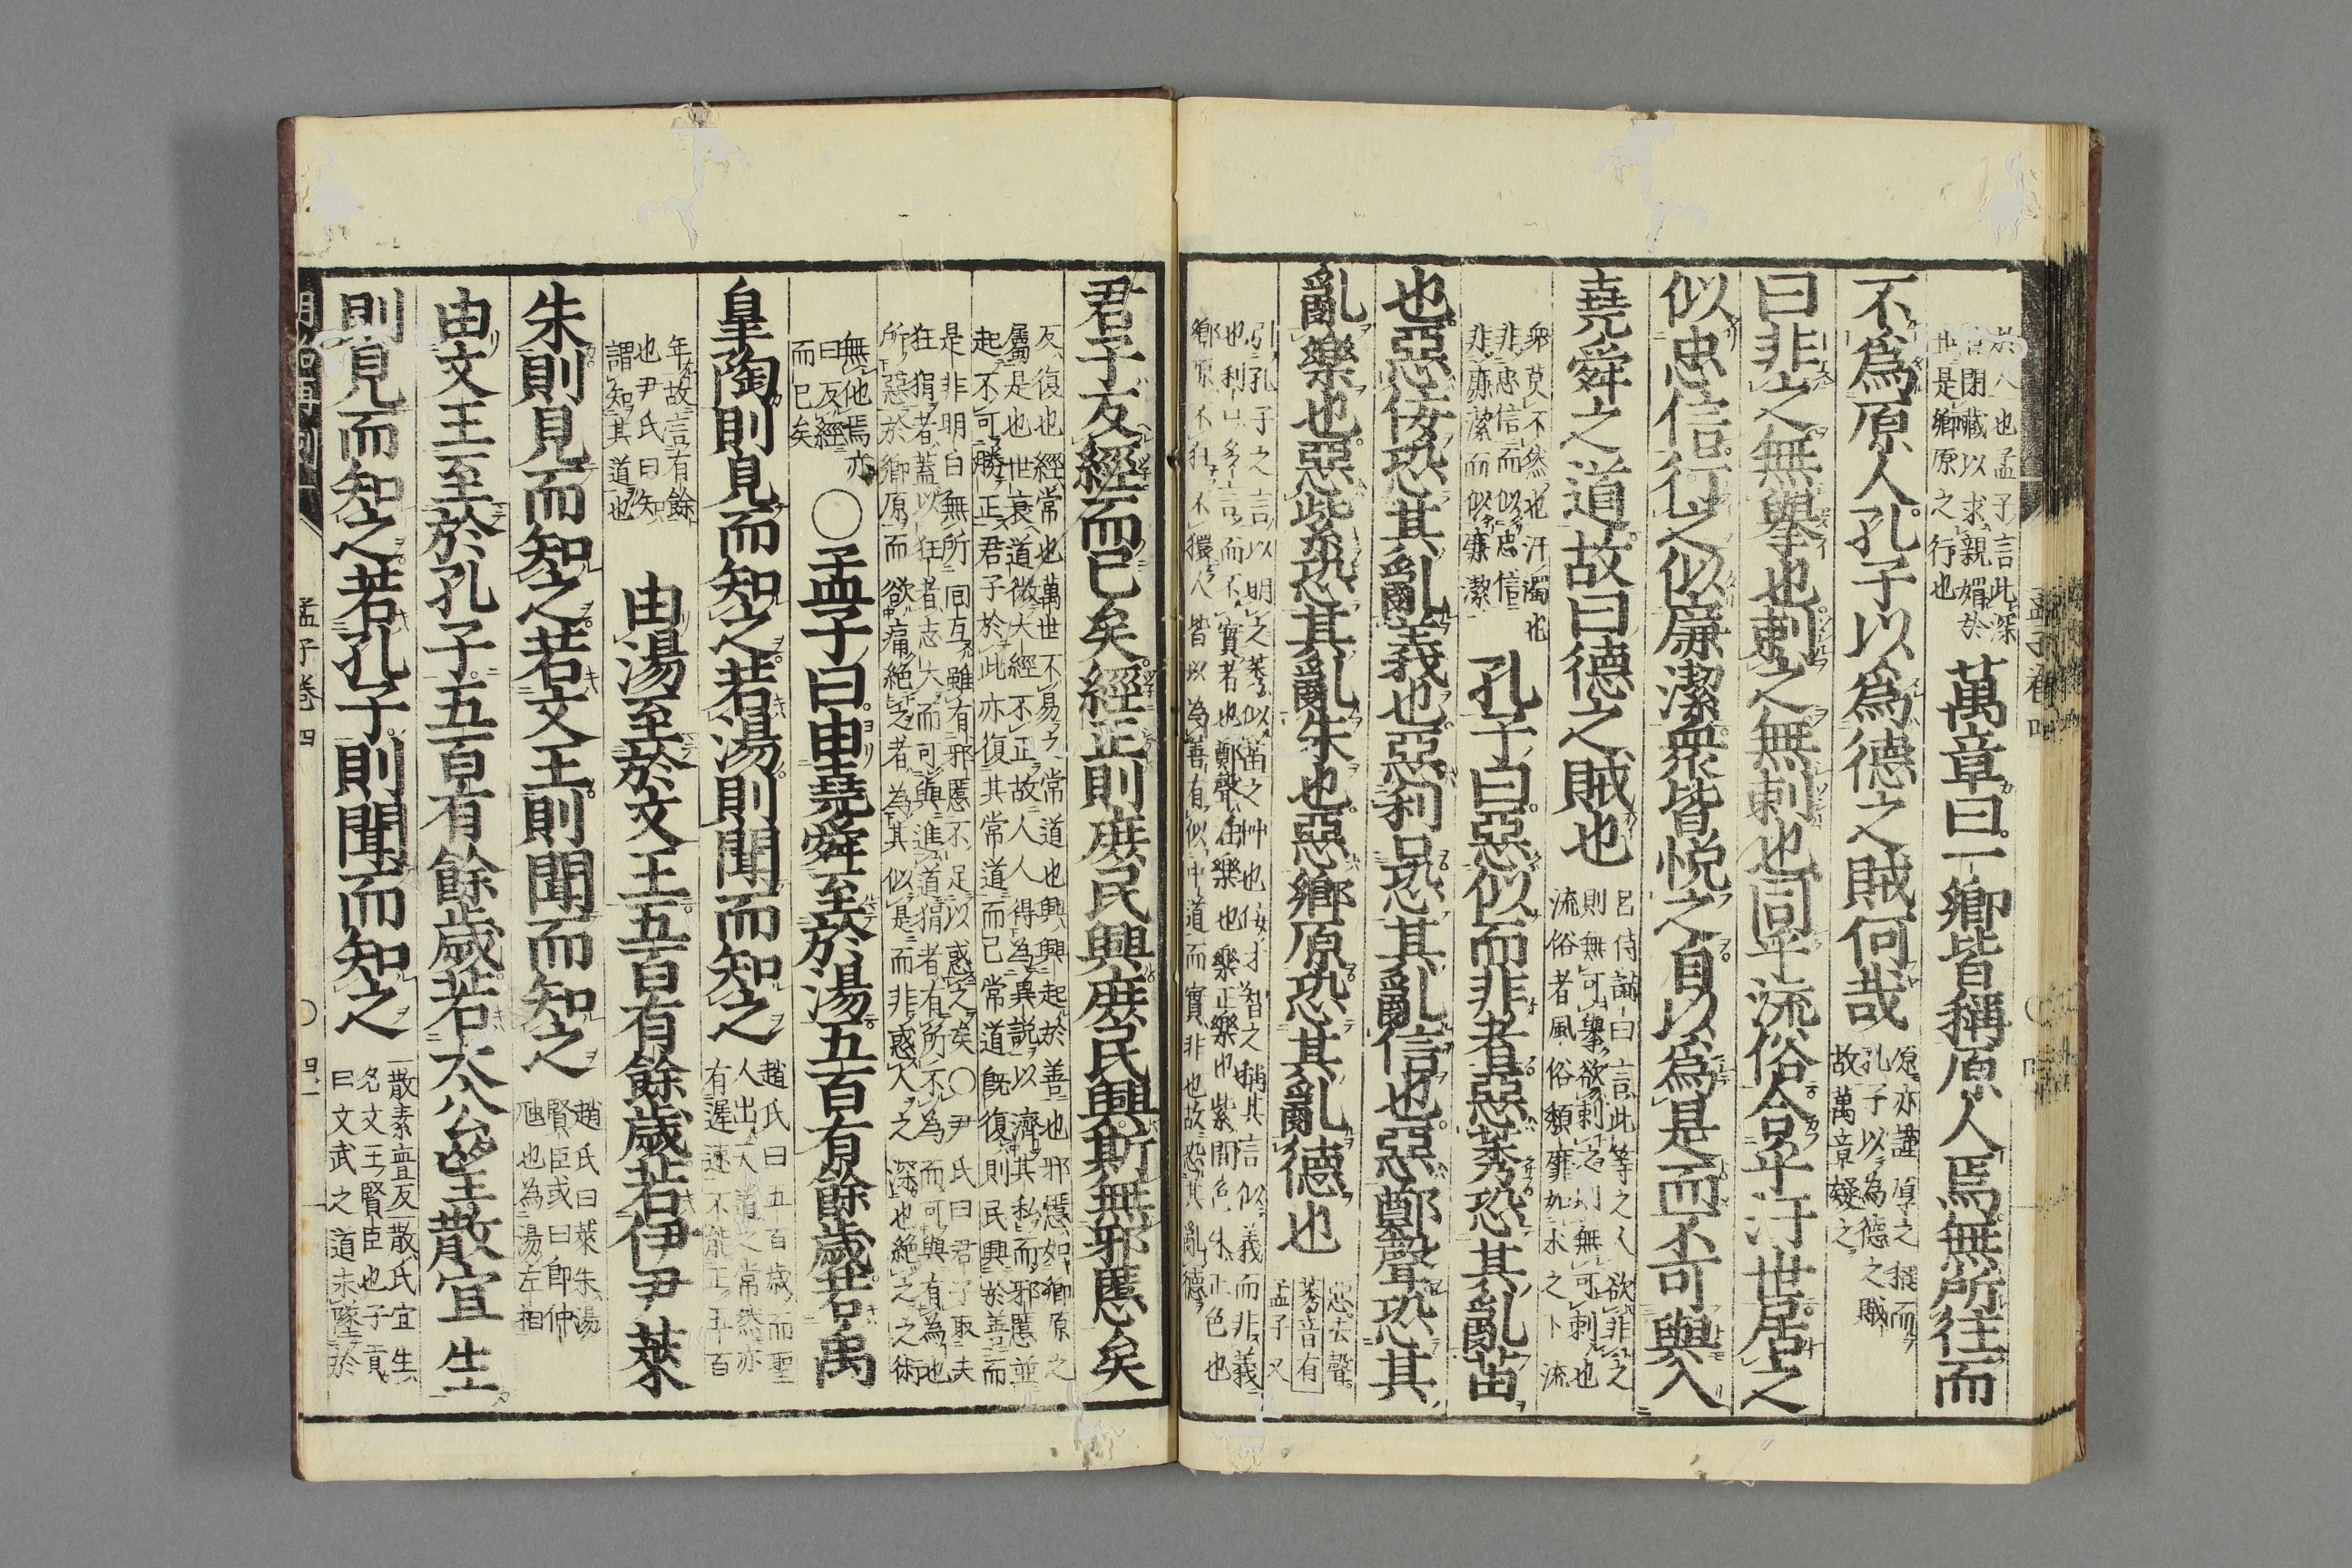 於人也孟子言此深
閉藏以求親媚於
世是鄉原之行也
萬章曰一鄉皆稱原人焉無所往而
不爲原人孔子以爲德之賊何哉
原亦謹厚之稱而
孔子以為德之賊
故萬章疑之
曰非之無擧也刺之無刺也同乎流俗合乎汙世居之
似忠信行之似廉潔衆皆悦之自以爲是而不可與入
堯舜之道故曰德之賊也
呂侍講曰言此等之人欲非之
則無可擧欲刺之則無可刺也
流俗者風俗頽靡如水之下流
衆莫不然也汙濁也
非忠信而似忠信
非廉潔而似廉潔
孔子曰惡似而非者惡莠恐其亂苗
也惡佞恐其亂義也惡利口恐其亂信也惡鄭聲恐其
亂樂也惡紫恐其亂朱也惡鄉原恐其亂德也
惡去聲
莠音有
孟子又
引孔子之言以明之莠似苗之艸也佞才智之稱其言似義而非義
也利口多言而不實者也鄭聲淫樂也樂正樂也紫間色朱正色也
鄉原不狂不獧人皆以為善有似中道而實非也故恐其亂德
君子反經而已矣經正則庶民興庶民興斯無邪慝矣
反復也經常也萬世不易之常道也興興起於善也邪慝如鄉原之
屬是也世衰道微大經不正故人人得為異説以濟其私而邪慝並
起不可勝正君子於此亦復其常道而已常道既復則民興於善而
是非明白無所回互雖有邪慝不足以惑之矣○尹氏曰君子取夫
狂狷者蓋以狂者志大而可與進道狷者有所不為而可與有為也
所惡於鄉原而欲痛絶之者為其似是而非惑人之深也絶之之術
無他焉亦
曰反經
而已矣
○孟子曰由堯舜至於湯五百有餘歲若禹
皐陶則見而知之若湯則聞而知之
趙氏曰五百歲而聖
人出天道之常然亦
有遲速不能正五百
年故言有餘
也尹氏曰知
謂知其道也
由湯至於文王五百有餘歲若伊尹萊
朱則見而知之若文王則聞而知之
趙氏曰萊朱湯
賢臣或曰即仲
虺也為湯左相
由文王至於孔子五百有餘歲若太公望散宜生
則見而知之若孔子則聞而知之
散素亶反散氏宜生
名文王賢臣也子貢
曰文武之道未墜於
孟子卷四